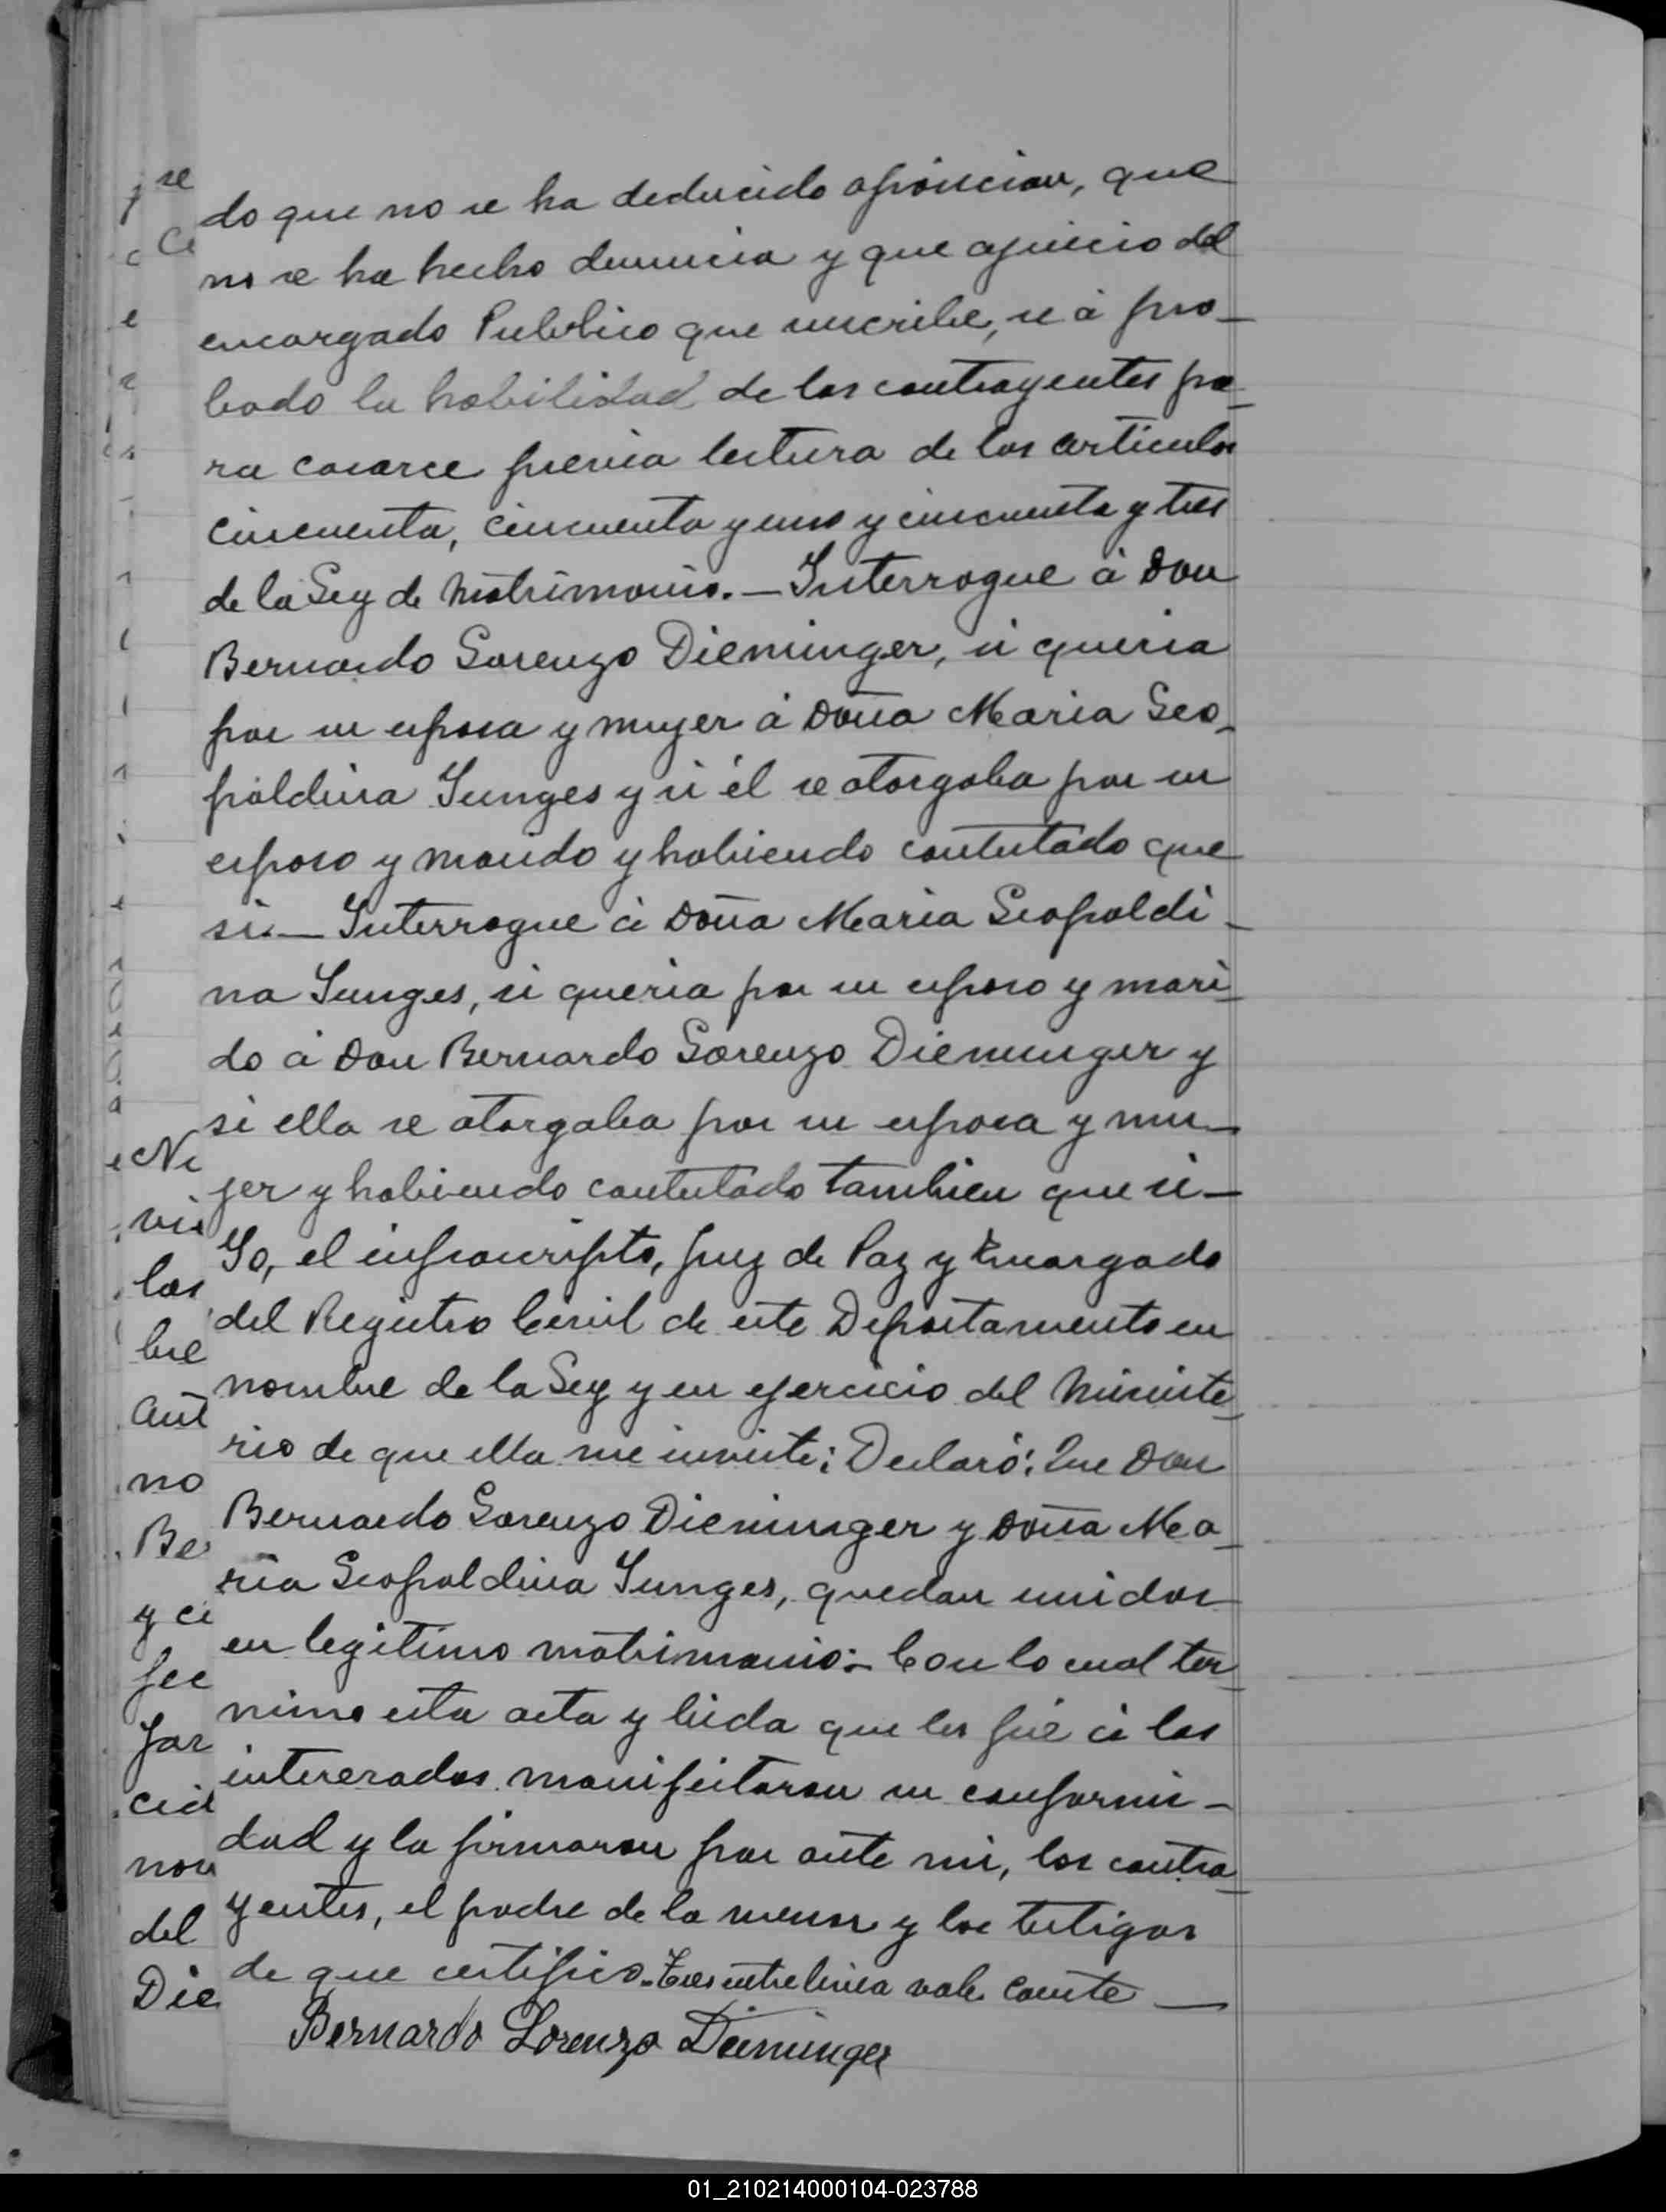 do que no se ha deducido oposicion, que
no se ha hecho denuncia y que ajuicio del
encargado Publico que suscribe, se á pro-
bado la habilidad de los contrayentes pa-
ra casarce previa lectura de los articulos
cincuenta, cincuenta y uno y cincuenta y tres
de la Ley de Matrimonio.- Interrogue á Don
Bernardo Lorenzo Dieminger, si queria
por su esposa y mujer á Doña Maria Leo-
poldina Junges y si él se otorgaba por su
esposo y marido y habiendo contestado que
si.- Interrogue á Doña Maria Leopoldi-
na Junges, si queria por su esposo y mari-
do á Don Bernardo Lorenzo Dieminger y
si ella se otorgaba por su esposa y mu-
jer y habiendo contestado tambien que si-
Yo, el infrascripto, Juez de Paz y Encargado
del Registro Cevil de este Departamento en
nombre de la Ley y en ejercicio del Ministe-
rio de que ella me inviste; Declaró: Que Don
Bernardo Lorenzo Dieminger y Doña Ma-
ria Leopoldina Junges, quedan unidos
en legitimo matrimonio:- Con lo cual ter-
mino esta acta y leida que les fué á los
interesados manifestaron su conformi-
dad y la firmaron por ante mi, los contra-
yentes, el padre de la menor y los testigos
de que certifico.- entre linea vale Conste-
Bernardo Lorenzo Dieminger
01_210214000104-023788